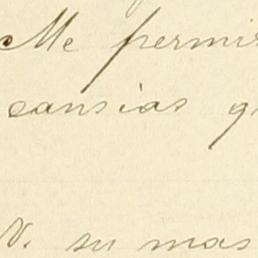 Me permi
cansias q
V. su mas